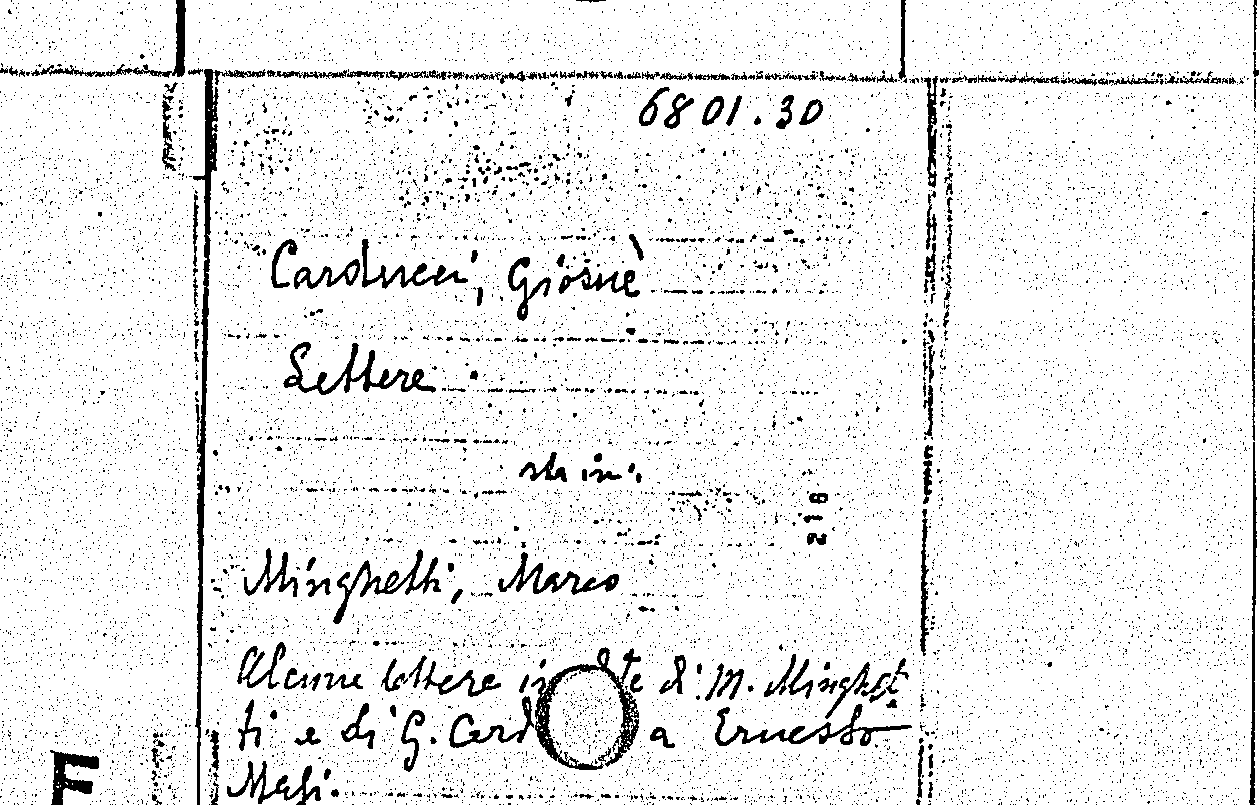 6801.30
Carducci, Giosuè
Lettere.
sta in:
216
Minghetti, Marco
Alcune lettere di M. Minghet
ti e di G. Card a Ernesto
Masi.
F